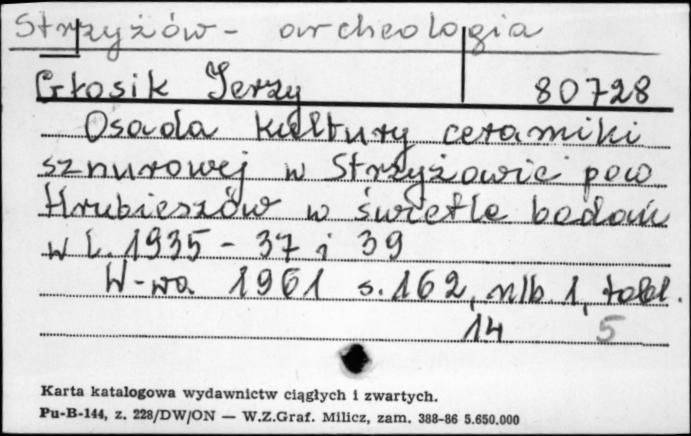 Strzyżów - archeologia
Głosik Jerzy 80728
Osada kultury ceramiki
sznurowej w Strzyżowie pow
Hrubieszów w świetle badań
w l. 1935 - 37 i 39
W-wa 1961 s. 162, nlb. 1, tabl.
14 5
Karta katalogowa wydawnictw ciągłych i zwartych.
Pu-B-144, z. 228/DW/ON — W.Z.Graf. Milicz, zam. 388-86 5.650.000